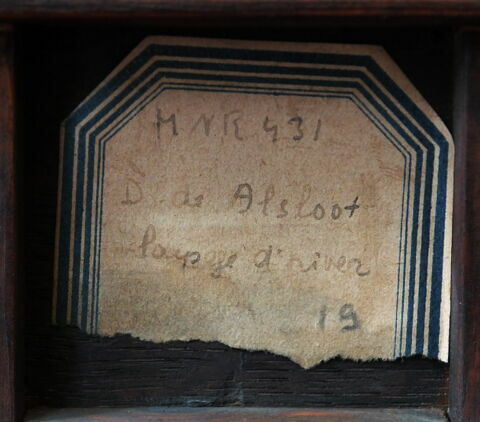 MNR 431
D. de Alsloot
paysage d'hiver
19